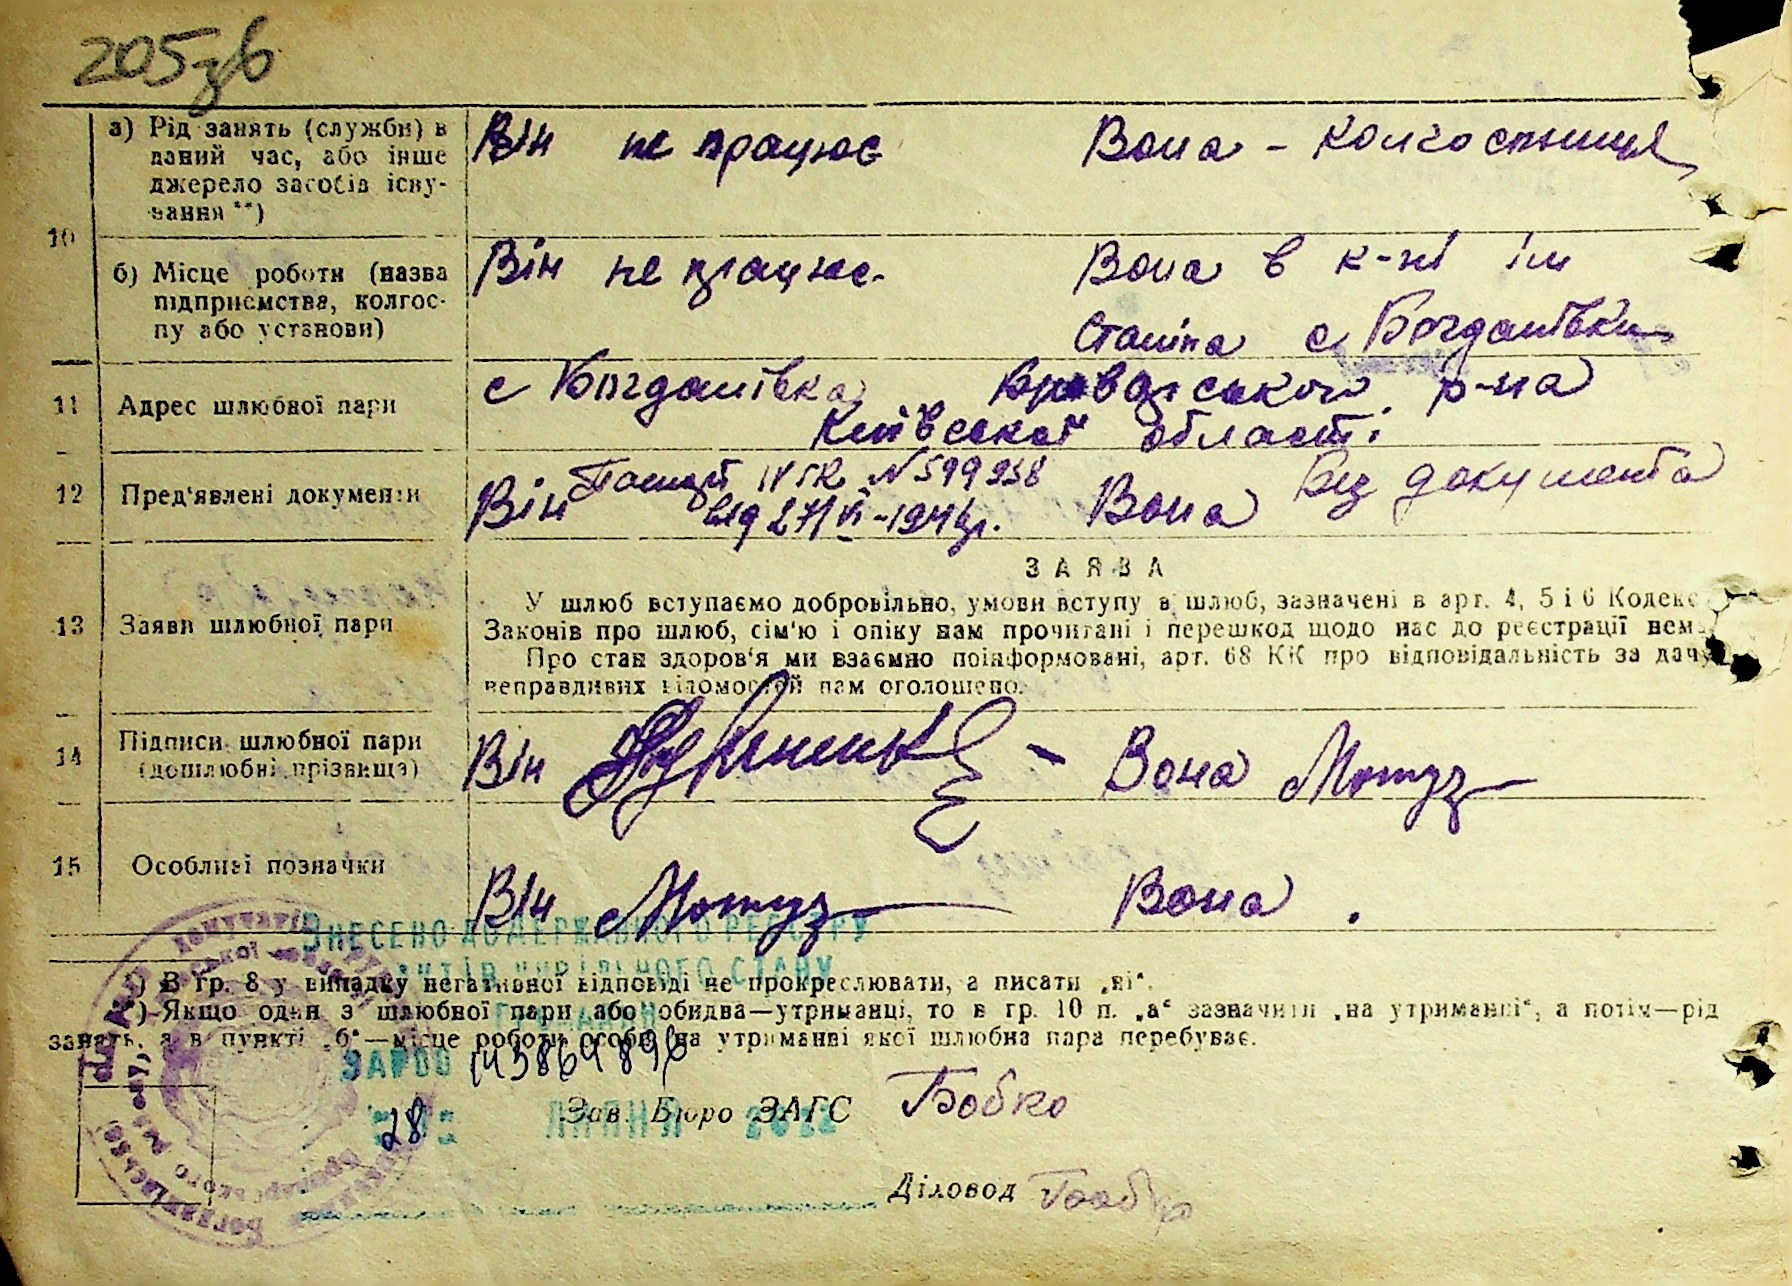 205зв
10
а) Рід занять (служби) в даний час, або інше джерело засобів існування **)
Він не працює Вона - колгоспниця
б) Місце роботи (назва підприємства, колгоспу або установи)
Він не працює. Вона в к-ні ім
Сталіна с Богданівки
11 Адрес шлюбної пари
с Богданівка Броварського р-на
Київської області.
12 Пред'явлені документи
Він Паспорт N 599938
від 27/VI-194 р. Вона Без документа
13 Заяви шлюбної пари
ЗАЯВА
У шлюб вступаємо добровільно, умови вступу в шлюб, зазначені в арт. 4, 5 і 6 Кодекс
Законів про шлюб, сім'ю і опіку нам прочитані і перешкод щодо нас до реєстрації нема
Про стан здоров'я ми взаємно поінформовані, арт. 68 КК про відповідальність за дачу
неправдивих відомостей нам оголошено.
14 Підписи шлюбної пари
(дошлюбні прізвища)
Він Вона Мотуз
15 Особливі позначки
Він Мотуз Вона .
ВНЕСЕНО ДО ДЕРЖАВНОГО РЕЄСТРУ
АКТІВ ЦИВІЛЬНОГО СТАНУ
ГРОМАДЯН
*) В гр. 8 у випадку негативної відповіді не прокреслювати, а писати „ні“.
**) Якщо один з шлюбної пари або обидва—утриманці, то в гр. 10 п. „а“ зазначити „на утриманні“, а потім—рід
занять, а в пункті „б“—місце роботи особи, на утриманні якої шлюбна пара перебуває.
28 ЛИПНЯ 2022
Зав. Бюро ЗАГС Бобко
Діловод